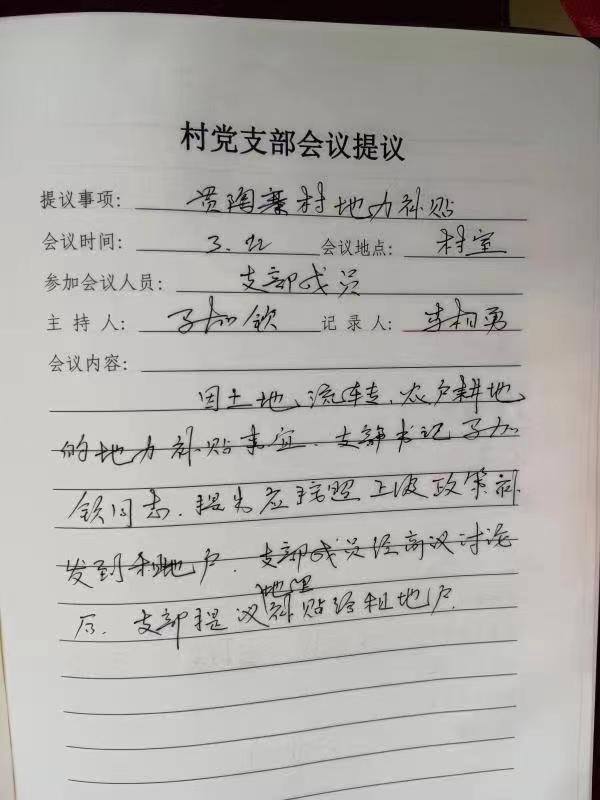 村党支部会议提议
提议事项: 贾陶寨村地力补贴
会议时间: 3.22 会议地点: 村室
参加会议人员: 支部成员
主 持 人: 子如钦 记 录 人: 李相勇
会议内容:
因土地流转, 农户耕地
的地力补贴事宜. 支部书记子如
钦同志. 提出应按照上级政策补
发到租地户. 支部成员经商议讨论
地里
后. 支部提议补贴给租地户.